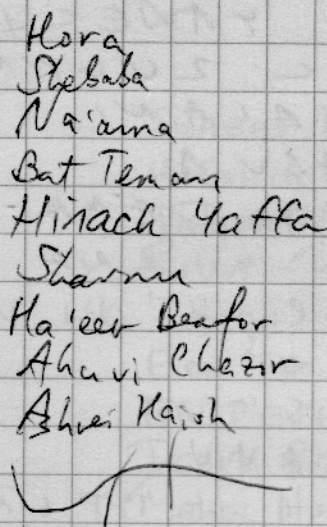 Hora
Shebaba
Na'ama
Bat Teman
Hinach Yaffa
Ha'eer Beafor
Ahuvi Chazor
Ashrei Haish